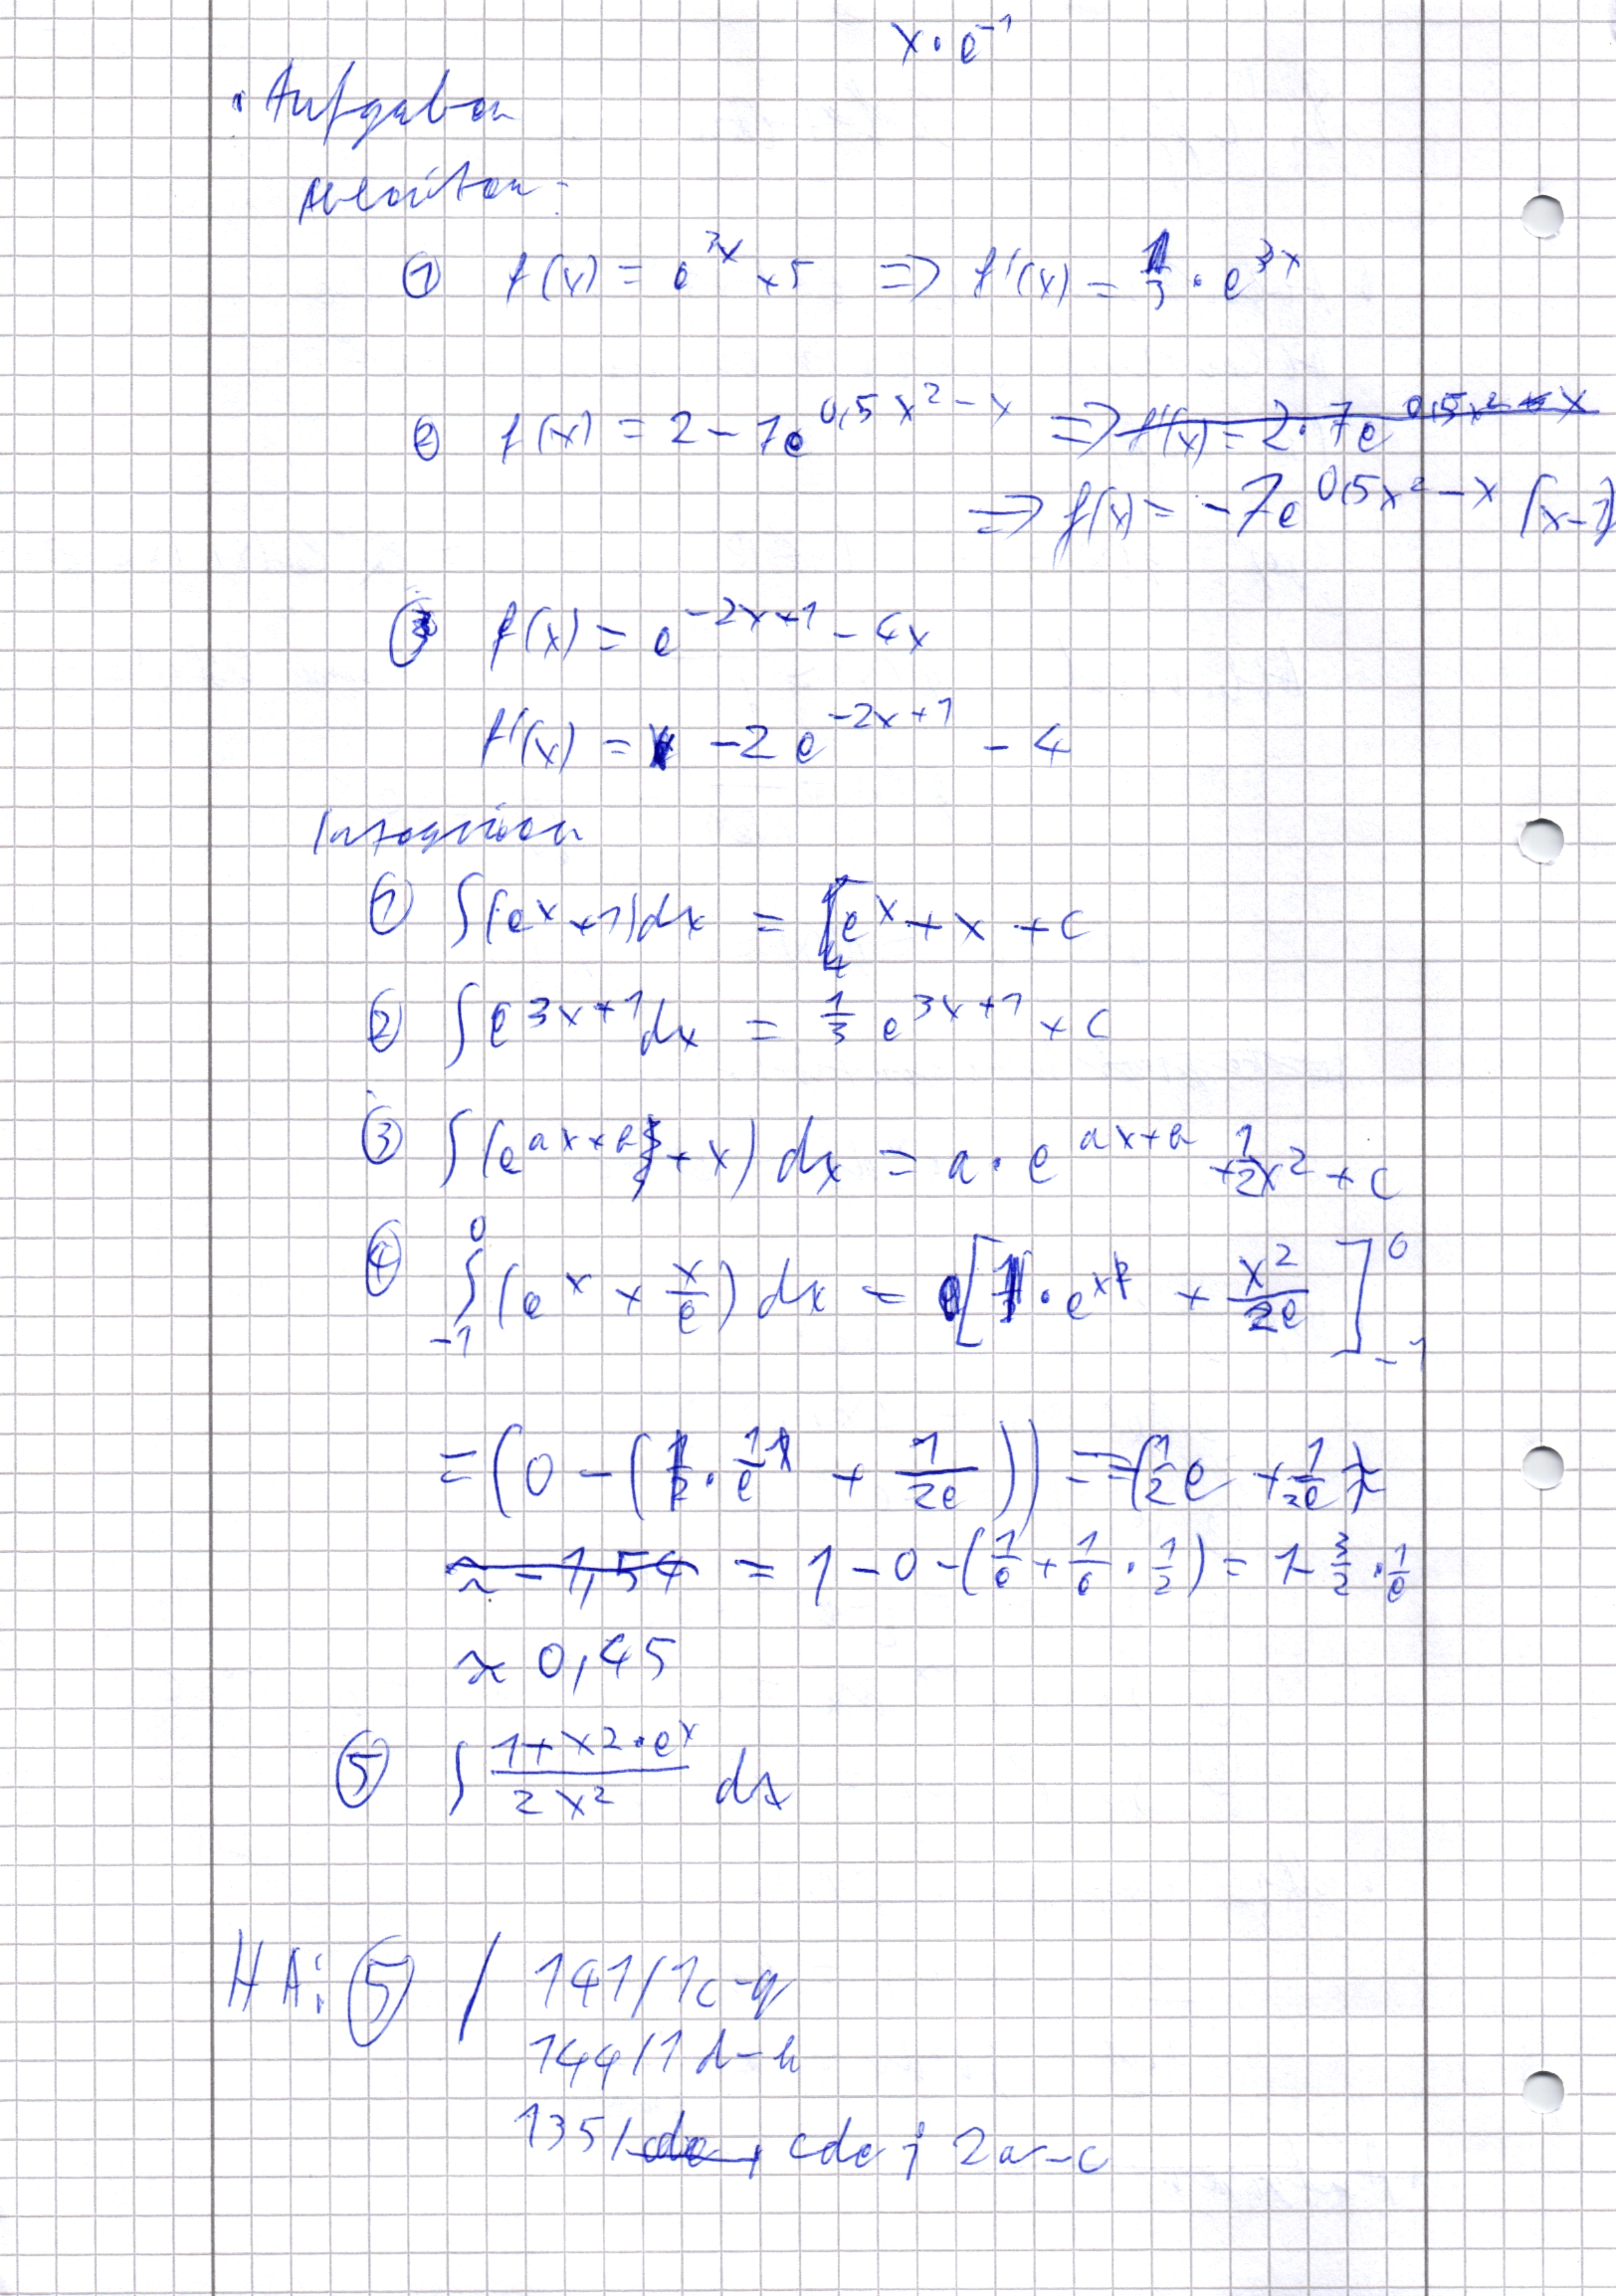 x · e⁻¹
· Aufgaben
Ableiten:
① f(x) = e^{3x} + 5 => f'(x) = 1/3 · e^{3x}
② f(x) = 2 - 7e^{0,5x² - x} => f'(x) = 2 · 7e^{0,5x² - x}
=> f(x) = -7e^{0,5x² - x} (x-1)
③ f(x) = e^{-2x+1} - 4x
f'(x) = -2 e^{-2x+1} - 4
Integrieren
① ∫(e^x + 1)dx = e^x + x + c
② ∫e^{3x+1}dx = 1/3 e^{3x+1} + c
③ ∫(e^{ax+b} + x) dx = a · e^{ax+b} + 1/2 x² + c
④ ∫_{-1}^{0} (e^x + x/e) dx = [1 · e^x + x²/2e]_{-1}^{0}
= (0 - (1/2 · 1/e + 1/2e)) = -(1/2 e + 1/2e) ≈
≈ -1,54 = 1 - 0 - (1/e + 1/e · 1/2) = 1 - 3/2 · 1/e
≈ 0,45
⑤ ∫ (1 + x2 · e^x)/(2x²) dx
HA: ⑤ / 141/1c-g
144/1d-h
135/ cde, cde; 2a-c